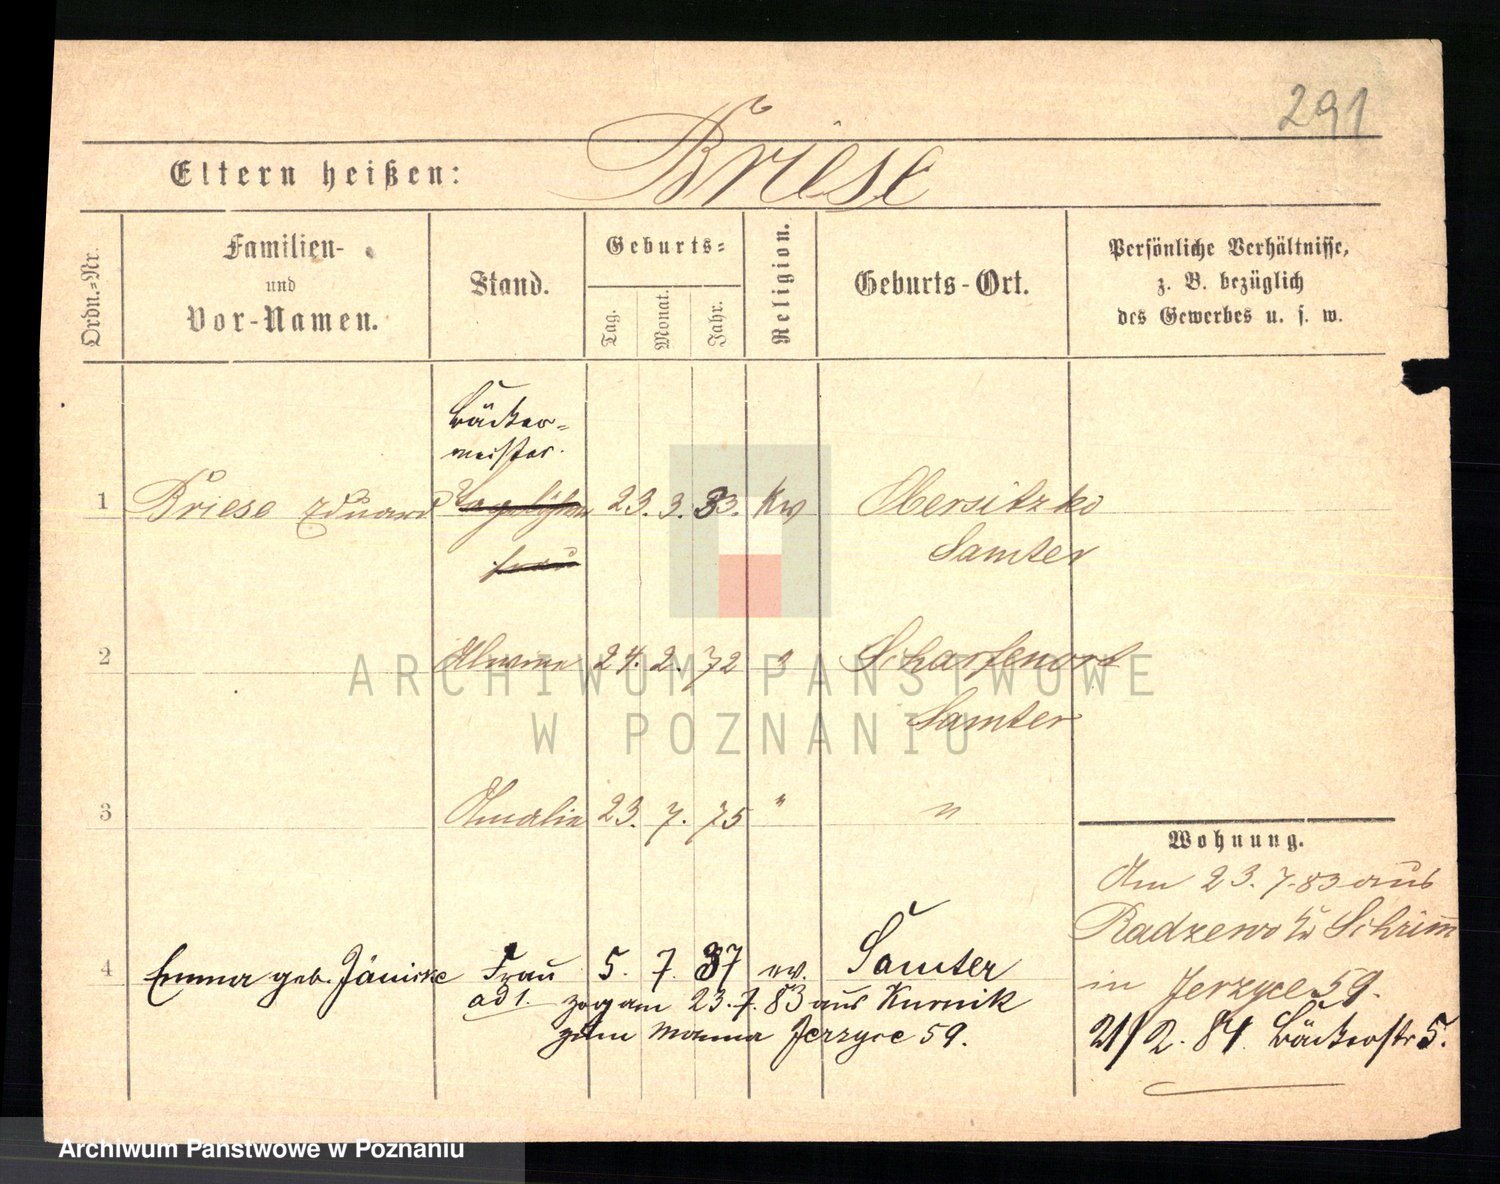 291
Eltern heißen: Briese
Ordn.=Nr.
Familien-
und
Vor-Namen.
Stand.
Geburts=
Tag.
Monat.
Jahr.
Religion.
Geburts-Ort.
Persönliche Verhältnisse,
z. B. bezüglich
des Gewerbes u. s. w.
Bäcker=
meister.
1 Briese Eduard 23. 3. 33. Kw Obersitzko
frau Samter
2 24. 2. 72 Scharfenort
Samter
3 Amalie 23. 7. 75 " "
Wohnung.
Am 23. 7. 83 aus
Radzewo Kr Schrimm
in Jerzyce 59.
21/2. 84 Bäckerstr 5.
4 Emma geb. Jänicke Frau 5. 7. 37 ev. Samter
ad 1. zog am 23. 7. 83 aus Kurnik
zum Manne Jerzyce 59.
ARCHIWUM PAŃSTWOWE
W POZNANIU
Archiwum Państwowe w Poznaniu